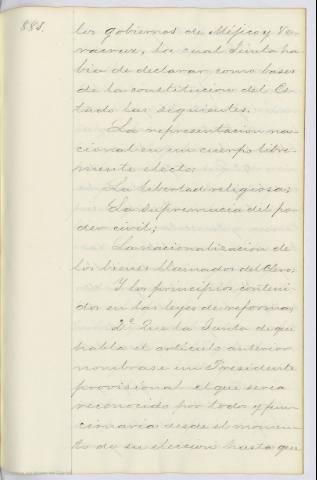 885.
los gobiernos de Méjico y Ve-
racruz, la cual Junta ha-
bia de declarar como bases
de la constitucion del Es-
tado las siguientes.
La representacion na-
cional en un cuerpo libre-
mente electo;
La libertad religiosa;
La supremacia del po-
der civil;
La nacionalizacion de
los bienes llamados del Clero;
Y los principios conteni-
dos en las leyes de reforma;
2º Que la Junta de que
habla el artículo anterior
nombrase un Presidente
provisional el que sería
reconocido por todos y fun-
cionaria desde el momen-
to de su eleccion hasta que